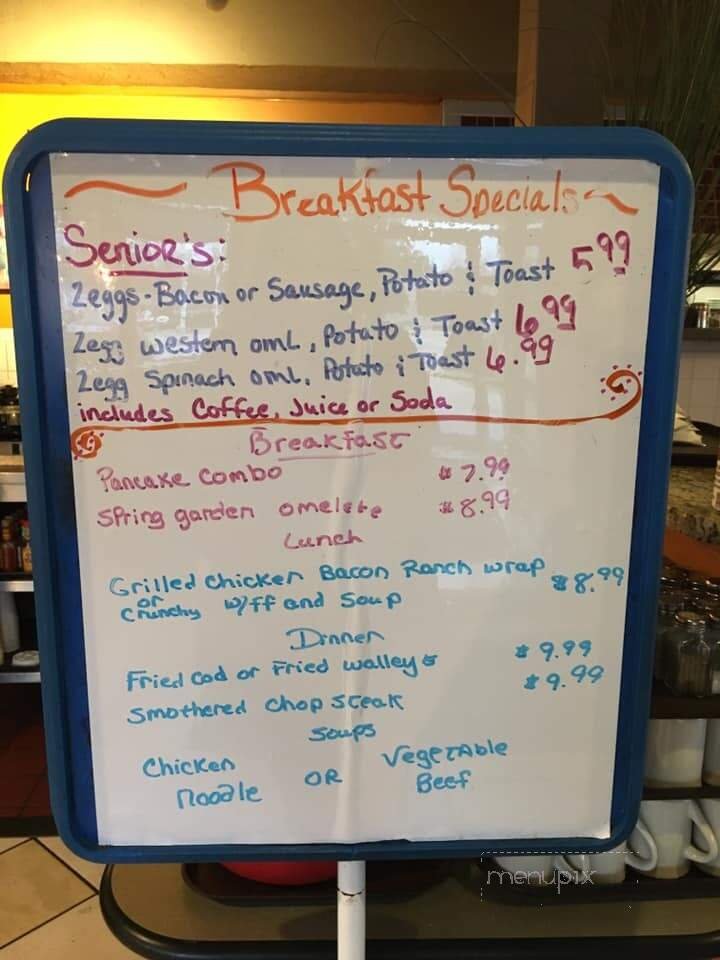 Breakfast Specials
Senior's:
2eggs-Bacon or Sausage, Potato & Toast 5.99
2egg western oml, Potato & Toast 6.99
2egg Spinach oml, Potato & Toast 6.99
includes Coffee, Juice or Soda
Breakfast
Pancake Combo $7.99
Spring garden omelete $8.99
Lunch
Grilled Chicken Bacon Ranch wrap $8.99
or
Crunchy w/ff and Soup
Dinner
Fried Cod or Fried walleys $9.99
Smothered Chop Steak $9.99
Soups
Chicken Noodle OR Vegetable Beef
menupix